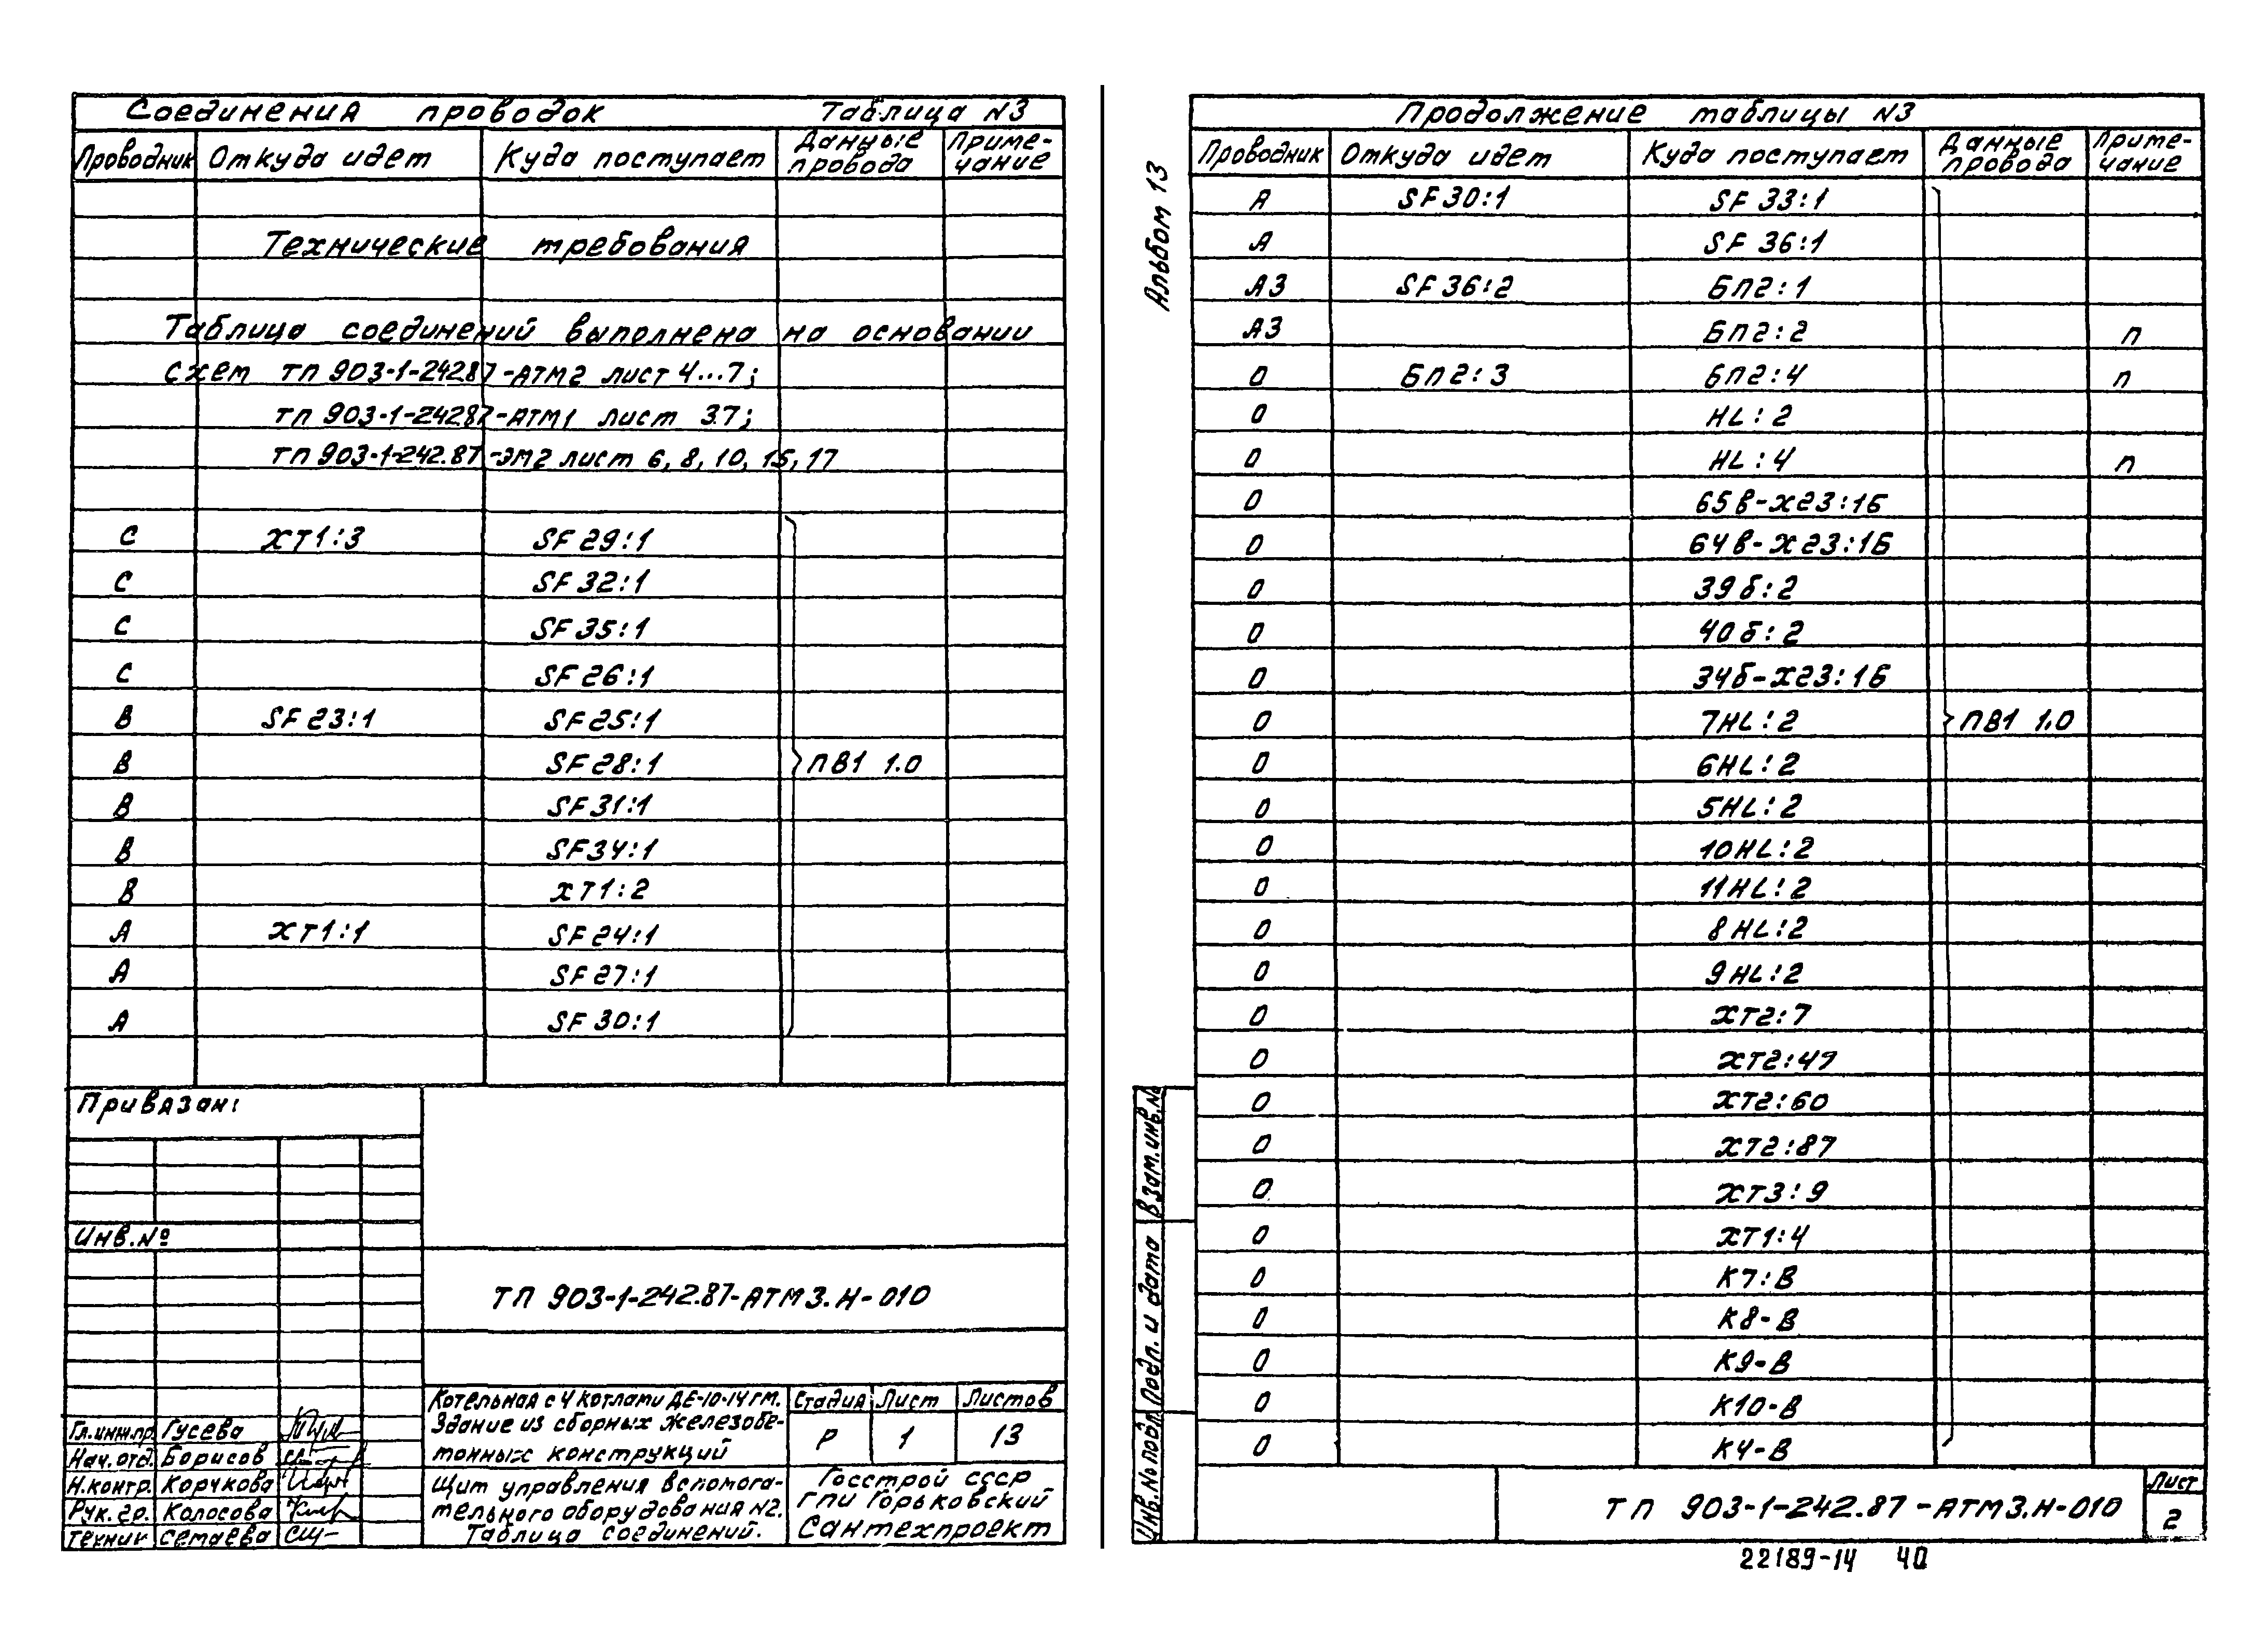 Соединения проводок Таблица N3
Проводник Откуда идет Куда поступает Данные провода Приме-чание
Технические требования
Таблица соединений выполнена на основании
схем ТП 903-1-242.87-АТМ2 лист 4...7;
ТП 903-1-242.87-АТМ1 лист 37;
ТП 903-1-242.87-ЭМ2 лист 6, 8, 10, 15, 17
С ХТ1:3 SF29:1
С SF32:1
С SF35:1
С SF26:1
В SF23:1 SF25:1
В SF28:1 ПВ1 1.0
В SF31:1
В SF34:1
В ХТ1:2
А ХТ1:1 SF24:1
А SF27:1
А SF30:1
Привязан:
Инв.№
ТП 903-1-242.87-АТМ3.Н-010
Котельная с 4 котлами ДЕ-10-14ГМ.
Здание из сборных железобе-
тонных конструкций
Стадия Лист Листов
Р 1 13
Гл.инж.пр. Гусева
Нач.отд. Борисов
Н.контр. Корчкова
Рук.гр. Колосова
Техник Семаева
Щит управления вспомога-
тельного оборудования N2.
Таблица соединений.
Госстрой СССР
ГПИ Горьковский
Сантехпроект
Альбом 13
Продолжение таблицы N3
Проводник Откуда идет Куда поступает Данные провода Приме-чание
А SF30:1 SF33:1
А SF36:1
А3 SF36:2 БП2:1
А3 БП2:2 п
0 БП2:3 БП2:4 п
0 HL:2
0 HL:4 п
0 65в-Х23:1Б
0 64в-Х23:1Б
0 39б:2
0 40б:2
0 34б-Х23:1Б
0 7HL:2 ПВ1 1.0
0 6HL:2
0 5HL:2
0 10HL:2
0 11HL:2
0 8HL:2
0 9HL:2
0 ХТ2:7
0 ХТ2:49
0 ХТ2:60
0 ХТ2:87
0 ХТ3:9
0 ХТ1:4
0 К7:В
0 К8-В
0 К9-В
0 К10-В
0 К4-В
Взам.инв.№
Подп. и дата
Инв.№ подл.
ТП 903-1-242.87-АТМ3.Н-010
Лист
2
22189-14 40